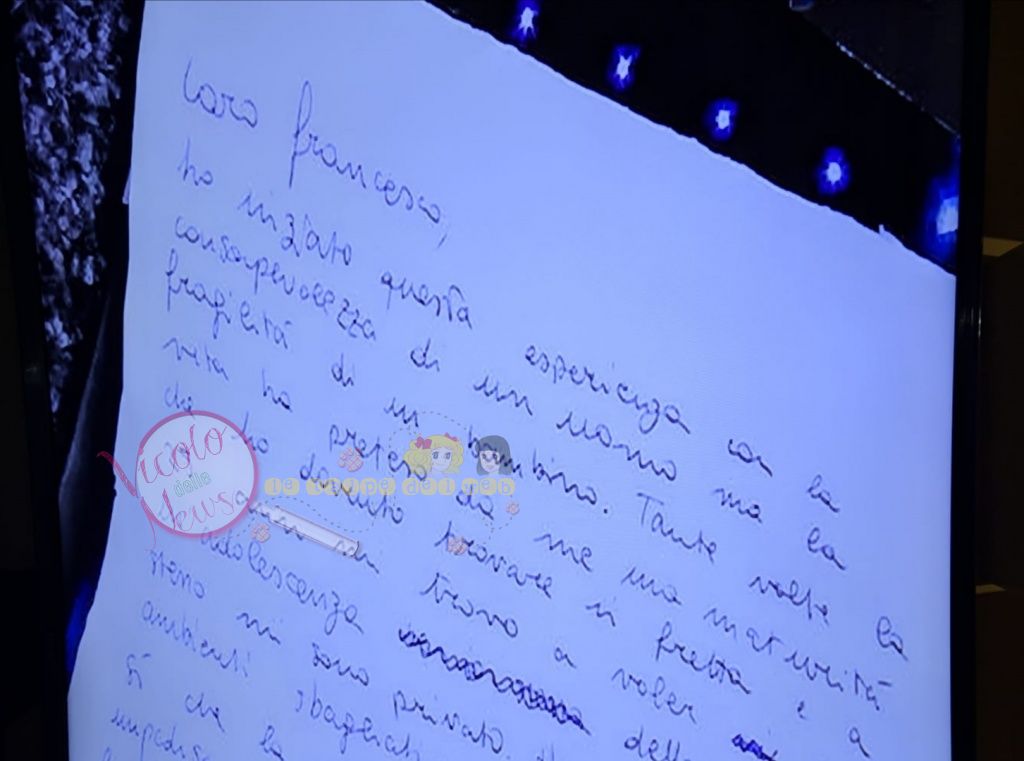 Caro francesco,
ho iniziato questa esperienza con la
consapevolezza di un uomo ma la
fragilità di un bambino. Tante volte la
vita ha preteso da me una maturità
che ho dovuto trovare in fretta e a
anni mi trovo a voler
adolescenza della
stesso mi sono privato.
ambienti sbagliati
sì che la
Vicolo
delle
News
le talpe del web